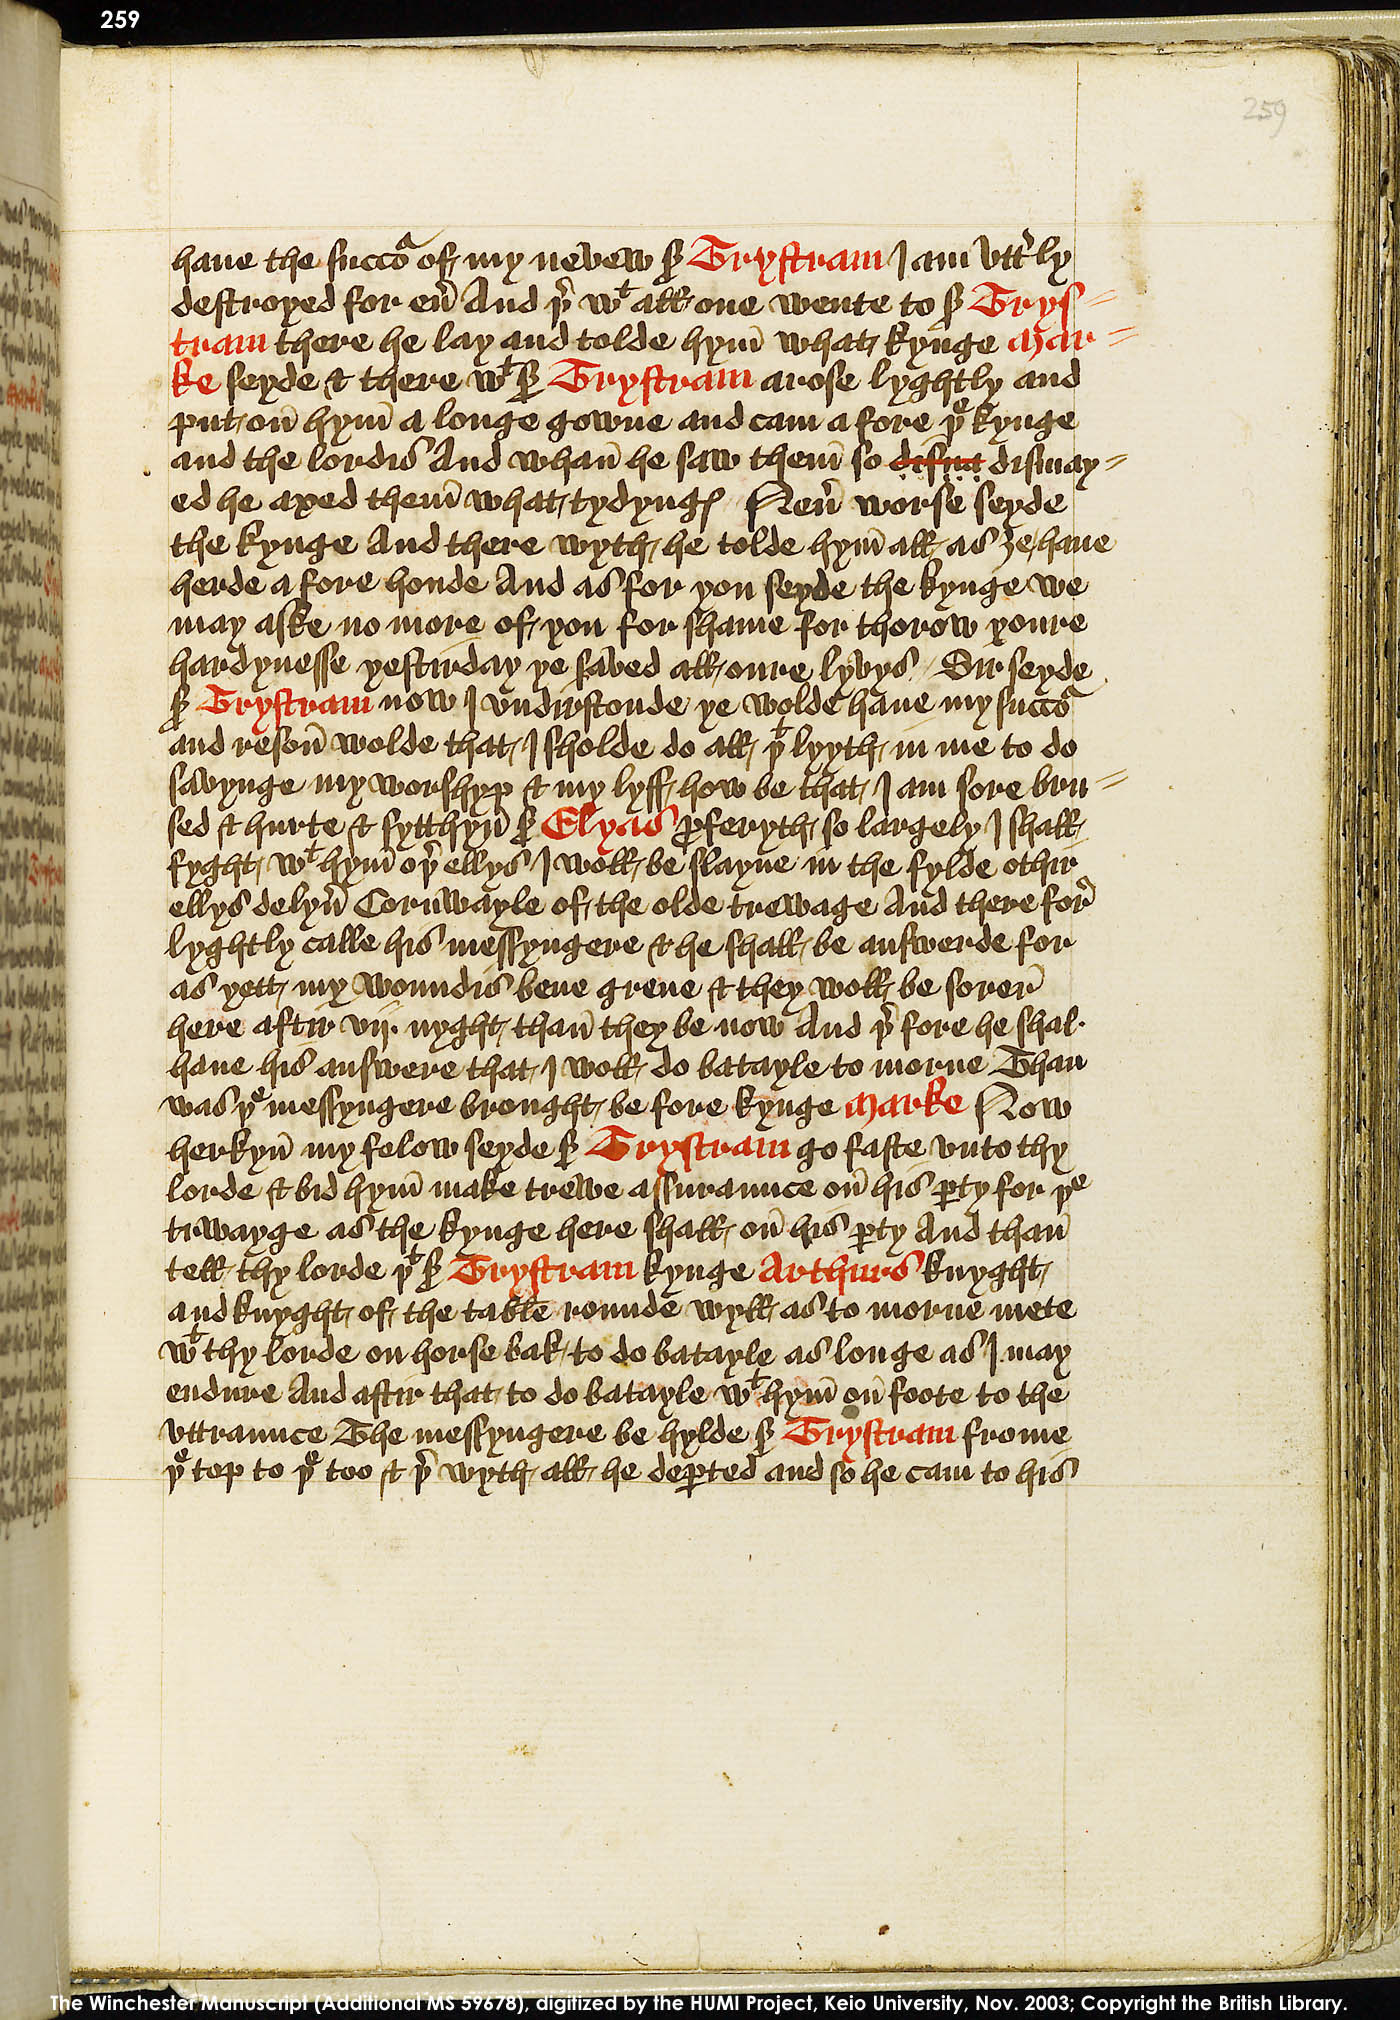 259
259
haue the succoᵃ of my nevew sͬ Trystram I am vtt'ly
destroyed for eũ And þ' wᵗ all one wente to sͬ Trys=
tram there he lay and tolde hym̄ what kynge Mar=
ke seyde & there wᵗ sͬ Trystram arose lyghtly and
put on̄ hym̄ a longe gowne and cam a fore þᵉ kynge
and the lordis And whan̄ he saw them̄ so disma dismay=
ed he axed them̄ what tydyngꝭ Neũ worse seyde
the kynge And there wyth he tolde hym̄ all as ȝe haue
herde a fore honde And as for you seyde the kynge we
may aske no more of you for shame for thorow youre
hardynesse yestirday ye saved all oure lyvys / Sir seyde
sͬ Trystram now I vndirstonde ye wolde haue my succoᵃ
and reson̄ wolde that I sholde do all þᵗ lyyth in me to do
savynge my worshyp & my lyff how be that I am sore bru=
sed & hurte & sytthyn̄ sͬ Elyas ꝓferyth so largely I shall
fyght wᵗ hym̄ oþ' ellys I woll be slayne in the fylde othir
ellys delyũ Cornwayle of the olde trewage And there for'
lyghtly calle his messyngere & he shall be answerde for
as yett my woundis bene grene & they woll be sorer̄
here aftir vij. nyght than̄ they be now And þ' fore he shal
haue his answere that I woll do batayle to morne Than
was þᵉ messyngere brought be fore kynge Marke Now
herkyn̄ my felow seyde sͬ Trystram go faste vnto thy
lorde & bid hym̄ make trewe assuraunce on̄ his ꝑty for þᵉ
trwayge as the kynge here shall on̄ his ꝑty And than̄
tell thy lorde þᵗ sͬ Trystram kynge Arthurs knyght
and knyght of the table rounde wyll as to morne mete
wᵗ thy lorde on horse bak to do batayle as longe as I may
endure And aftir that to do batayle wᵗ hym̄ on̄ foote to the
vttraunce The messyngere be hylde sͬ Trystram frome
þᵉ top to þᵉ too & þ' wyth all he deꝑted and so he cam to his
The Winchester Manuscript (Additional MS 59678), digitized by the HUMI Project, Keio University, Nov. 2003; Copyright the British Library.